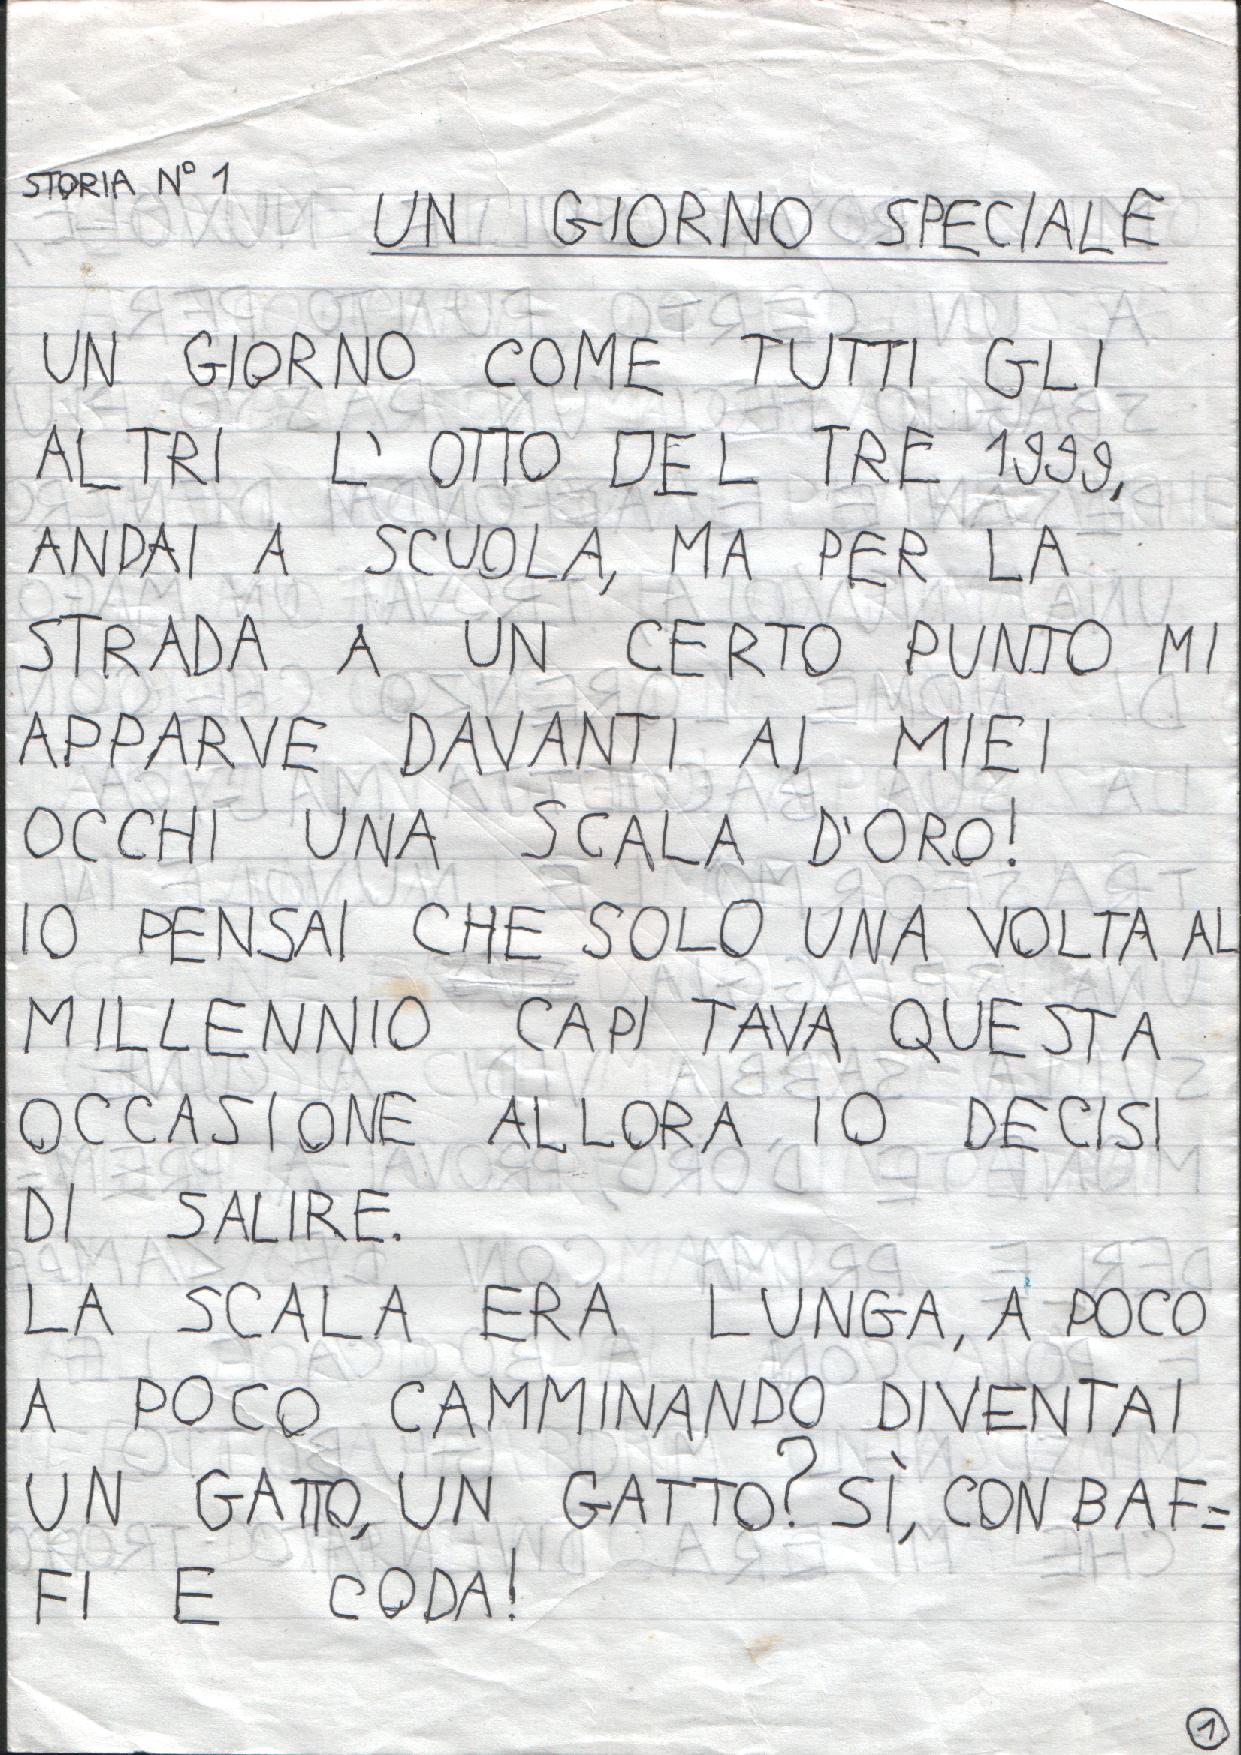 STORIA N° 1
UN GIORNO SPECIALE
UN GIORNO COME TUTTI GLI
ALTRI L' OTTO DEL TRE 1999,
ANDAI A SCUOLA, MA PER LA
STRADA A UN CERTO PUNTO MI
APPARVE DAVANTI AI MIEI
OCCHI UNA SCALA D'ORO!
IO PENSAI CHE SOLO UNA VOLTA AL
MILLENNIO CAPITAVA QUESTA
OCCASIONE ALLORA IO DECISI
DI SALIRE.
LA SCALA ERA LUNGA, A POCO
A POCO CAMMINANDO DIVENTAI
UN GATTO, UN GATTO? SÌ, CON BAF=
FI E CODA!
1